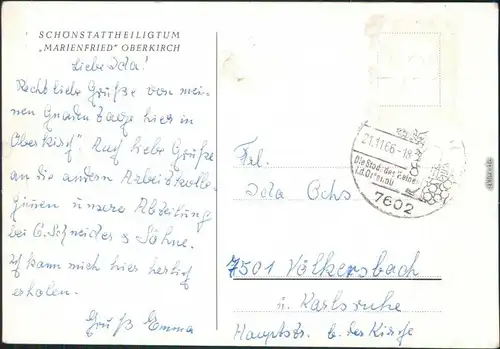 SCHÖNSTATTHEILIGTUM
„MARIENFRIED" OBERKIRCH
Liebe Ida!
Recht liebe Grüße von mei-
nen Gnaden Tage hier in
Oberkirch". Auf liebe Grüße
an die andern Arbeitskolle-
ginnen unsere Abteilung
bei C. Schneider & Söhne.
Ich kann mich hier herlich
erholen.
Gruß Emma
21.11.66-18
Die Stadt des Weines
i.d. Ortenau
7602
Frl.
Ida Ochs
7501 Völkersbach
ü. Karlsruhe
Hauptstr. b. der Kirche